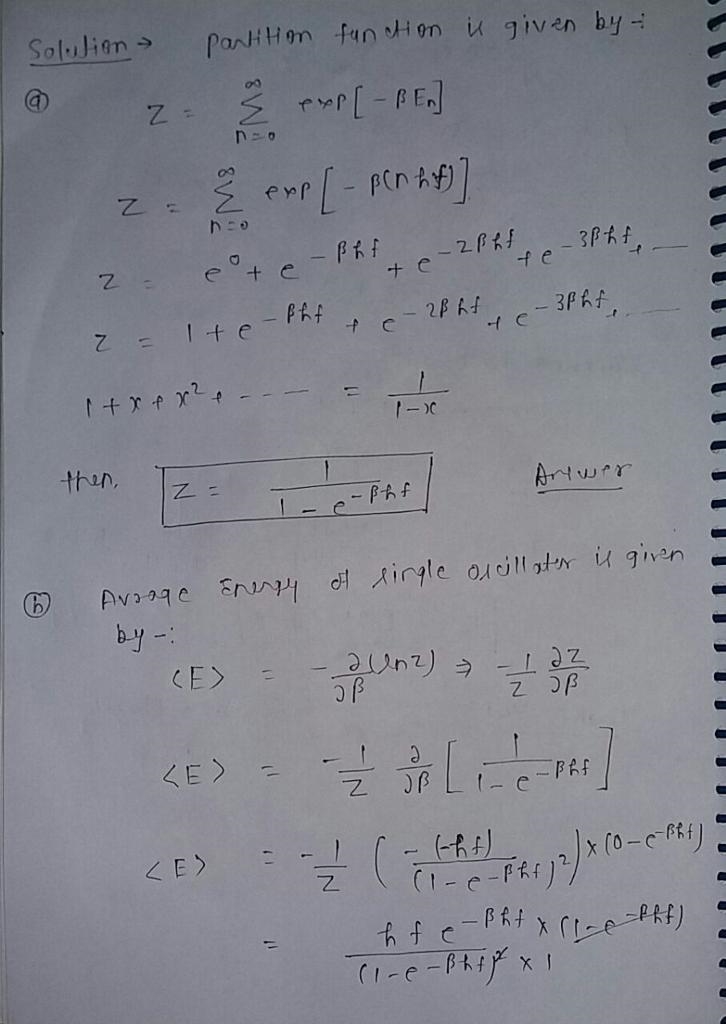 Solution → partition function is given by :-
(a) Z = Σ_{n=0}^{∞} exp[-βEn]
Z = Σ_{n=0}^{∞} exp[-β(nhf)]
Z = e^0 + e^{-βhf} + e^{-2βhf} + e^{-3βhf} + —
Z = 1 + e^{-βhf} + e^{-2βhf} + e^{-3βhf} + ---
1 + x + x² + ---- = 1/(1-x)
then, Z = 1/(1 - e^{-βhf}) Answer
(b) Avrage Energy of single oscillator is given
by -:
<E> = -∂(lnz)/∂β ⇒ -1/Z ∂Z/∂β
<E> = -1/Z ∂/∂β [1/(1-e^{-βhf})]
<E> = -1/Z (-(-hf)/(1-e^{-βhf})²) × (0-e^{-βhf})
= hf e^{-βhf} × (1-e^{-βhf})/((1-e^{-βhf})² × 1)